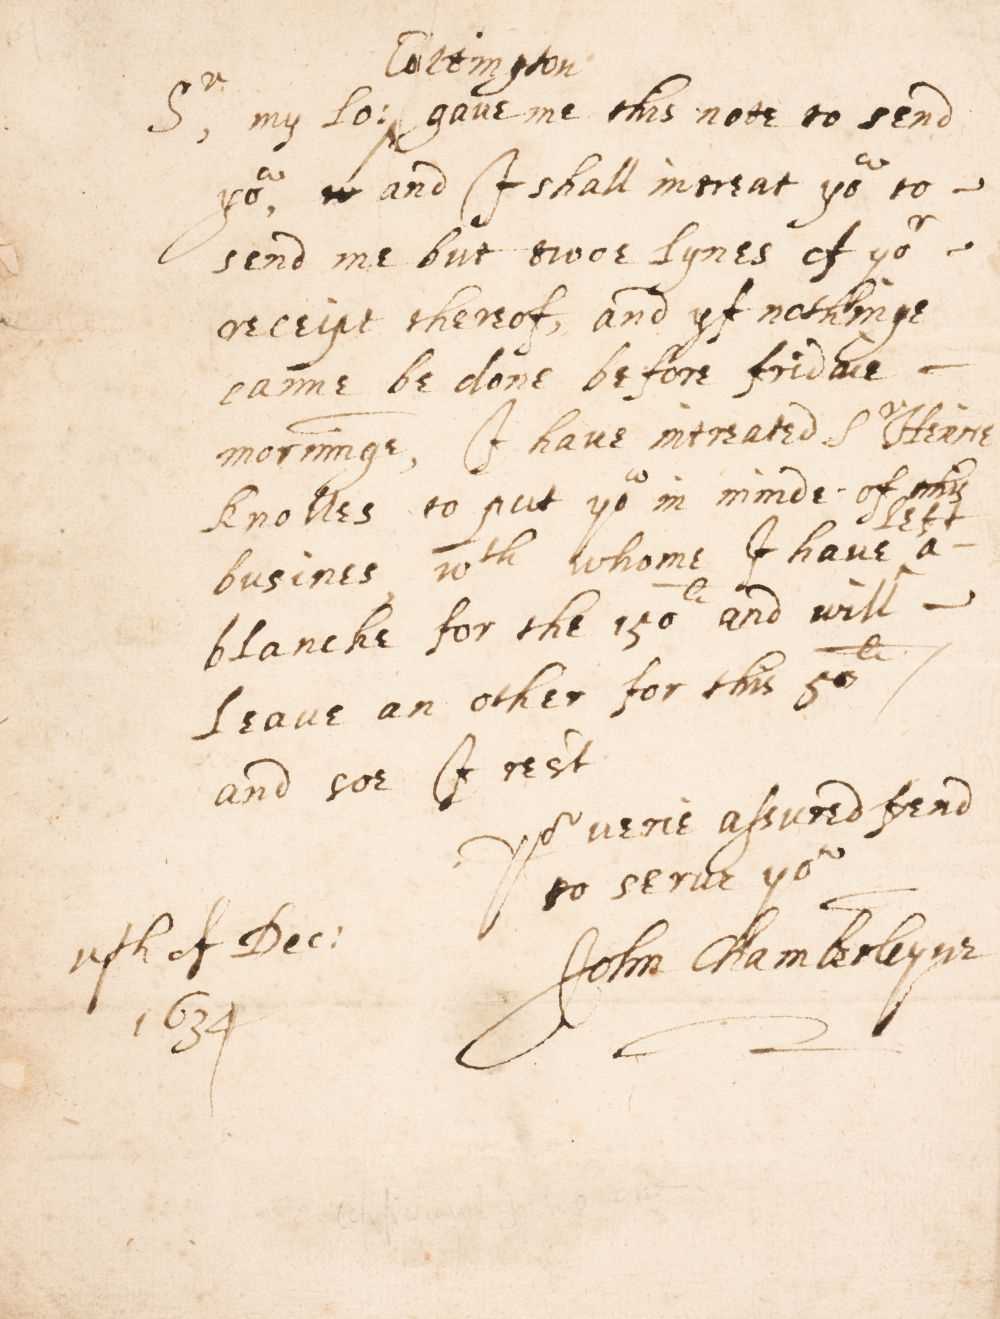 Cottington
Sr, my Lo: gave me this note to send
yow, and I shall intreat yow to
send me but twoe Lynes of yor
receipt thereof, and yf nothinge
canne be done before fridaie
morninge, I have intreated Sr Henrie
Knolles to put yow in minde of this
left
busines, wth whome I have a
blancke for the 150li and will
Leave an other for this 50li
and soe I rest
Yor verie assured frend
to serve yow
John Chamberleyne
of Dec:
1634